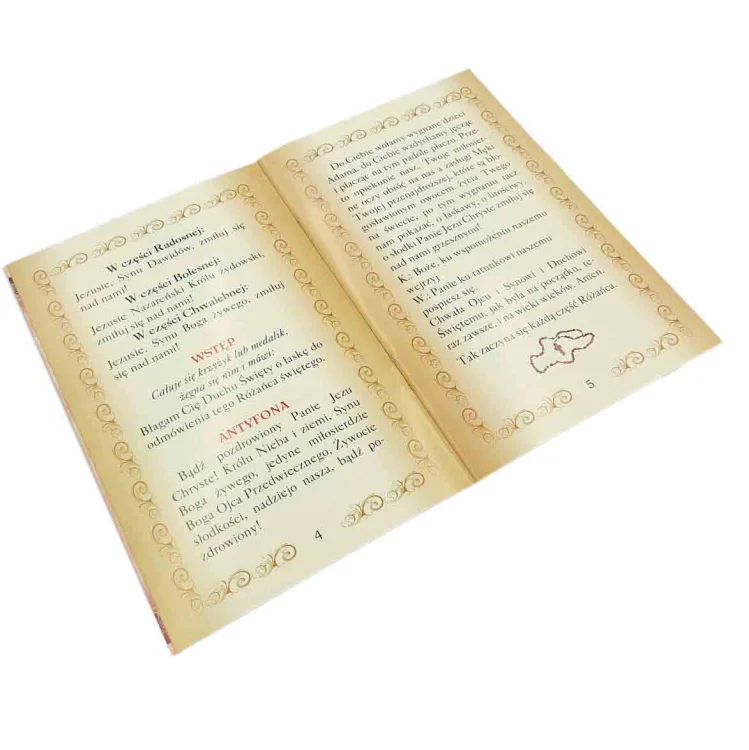 W części Radosnej:
Jezusie, Synu Dawidów, zmiłuj się
nad nami!
W części Bolesnej:
Jezusie Nazareński Królu żydowski,
zmiłuj się nad nami!
W części Chwalebnej:
Jezusie, Synu Boga żywego, zmiłuj
się nad nami!
WSTĘP
Całuje się krzyżyk lub medalik,
żegna się nim i mówi:
Błagam Cię Duchu Święty o łaskę do
odmówienia tego Różańca świętego.
ANTYFONA
Bądź pozdrowiony Panie Jezu
Chryste! Królu Nieba i ziemi, Synu
Boga żywego, jedyne miłosierdzie
Boga Ojca Przedwiecznego, Żywocie
słodkości, nadziejo nasza, bądź po-
zdrowiony!
4
Do Ciebie wołamy wygnane dzieci
Adama, do Ciebie wzdychamy jęcząc
i płacząc na tym padole płaczu. Prze-
to opiekunie nasz, Twoje miłosier-
ne oczy obróć na nas a zasługi Męki
Twojej przenajdroższej, które są bło-
gosławionym owocem życia Twego
na świecie, po tym wygnaniu racz
nam pokazać, o łaskawy, o litosny,
o słodki Panie Jezu Chryste zmiłuj się
nad nami grzesznymi!
K.: Boże, ku wspomożeniu naszemu
wejrzyj
W.: Panie ku ratunkowi naszemu
pospiesz się.
Chwała Ojcu i Synowi i Duchowi
Świętemu, jak była na początku, te-
raz zawsze, i na wieki wieków. Amen.
Tak zaczyna się każdą część Różańca.
5